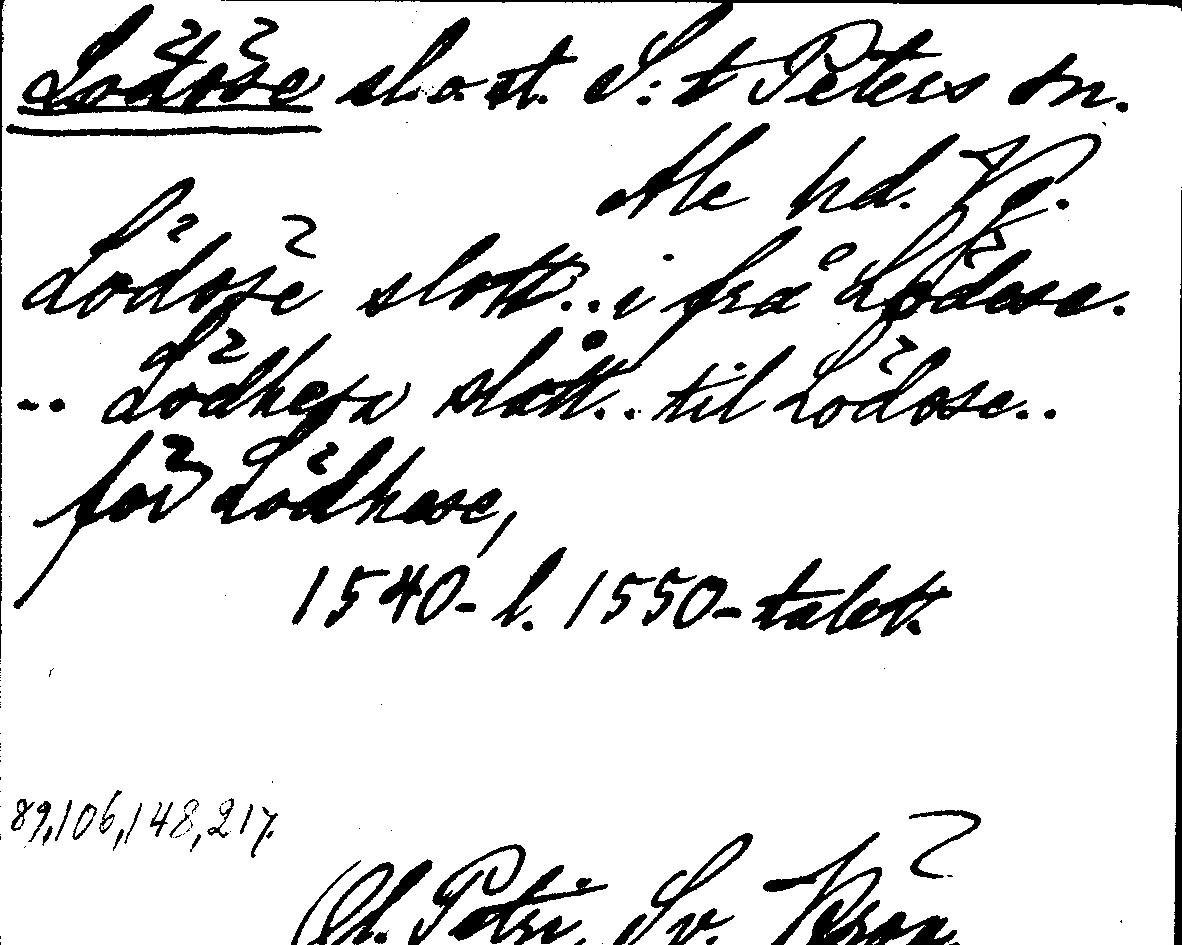 Lödöse sl.o.st. S:t Peters sn.
Ale hd. Vg.
Lödöse slott.. i frå Lödese.
.. Lödhese slått.. til Lödose..
för Lödhese,
1540- l. 1550-talet.
89,106,148,217.
Ol. Petri. Sv. Krön